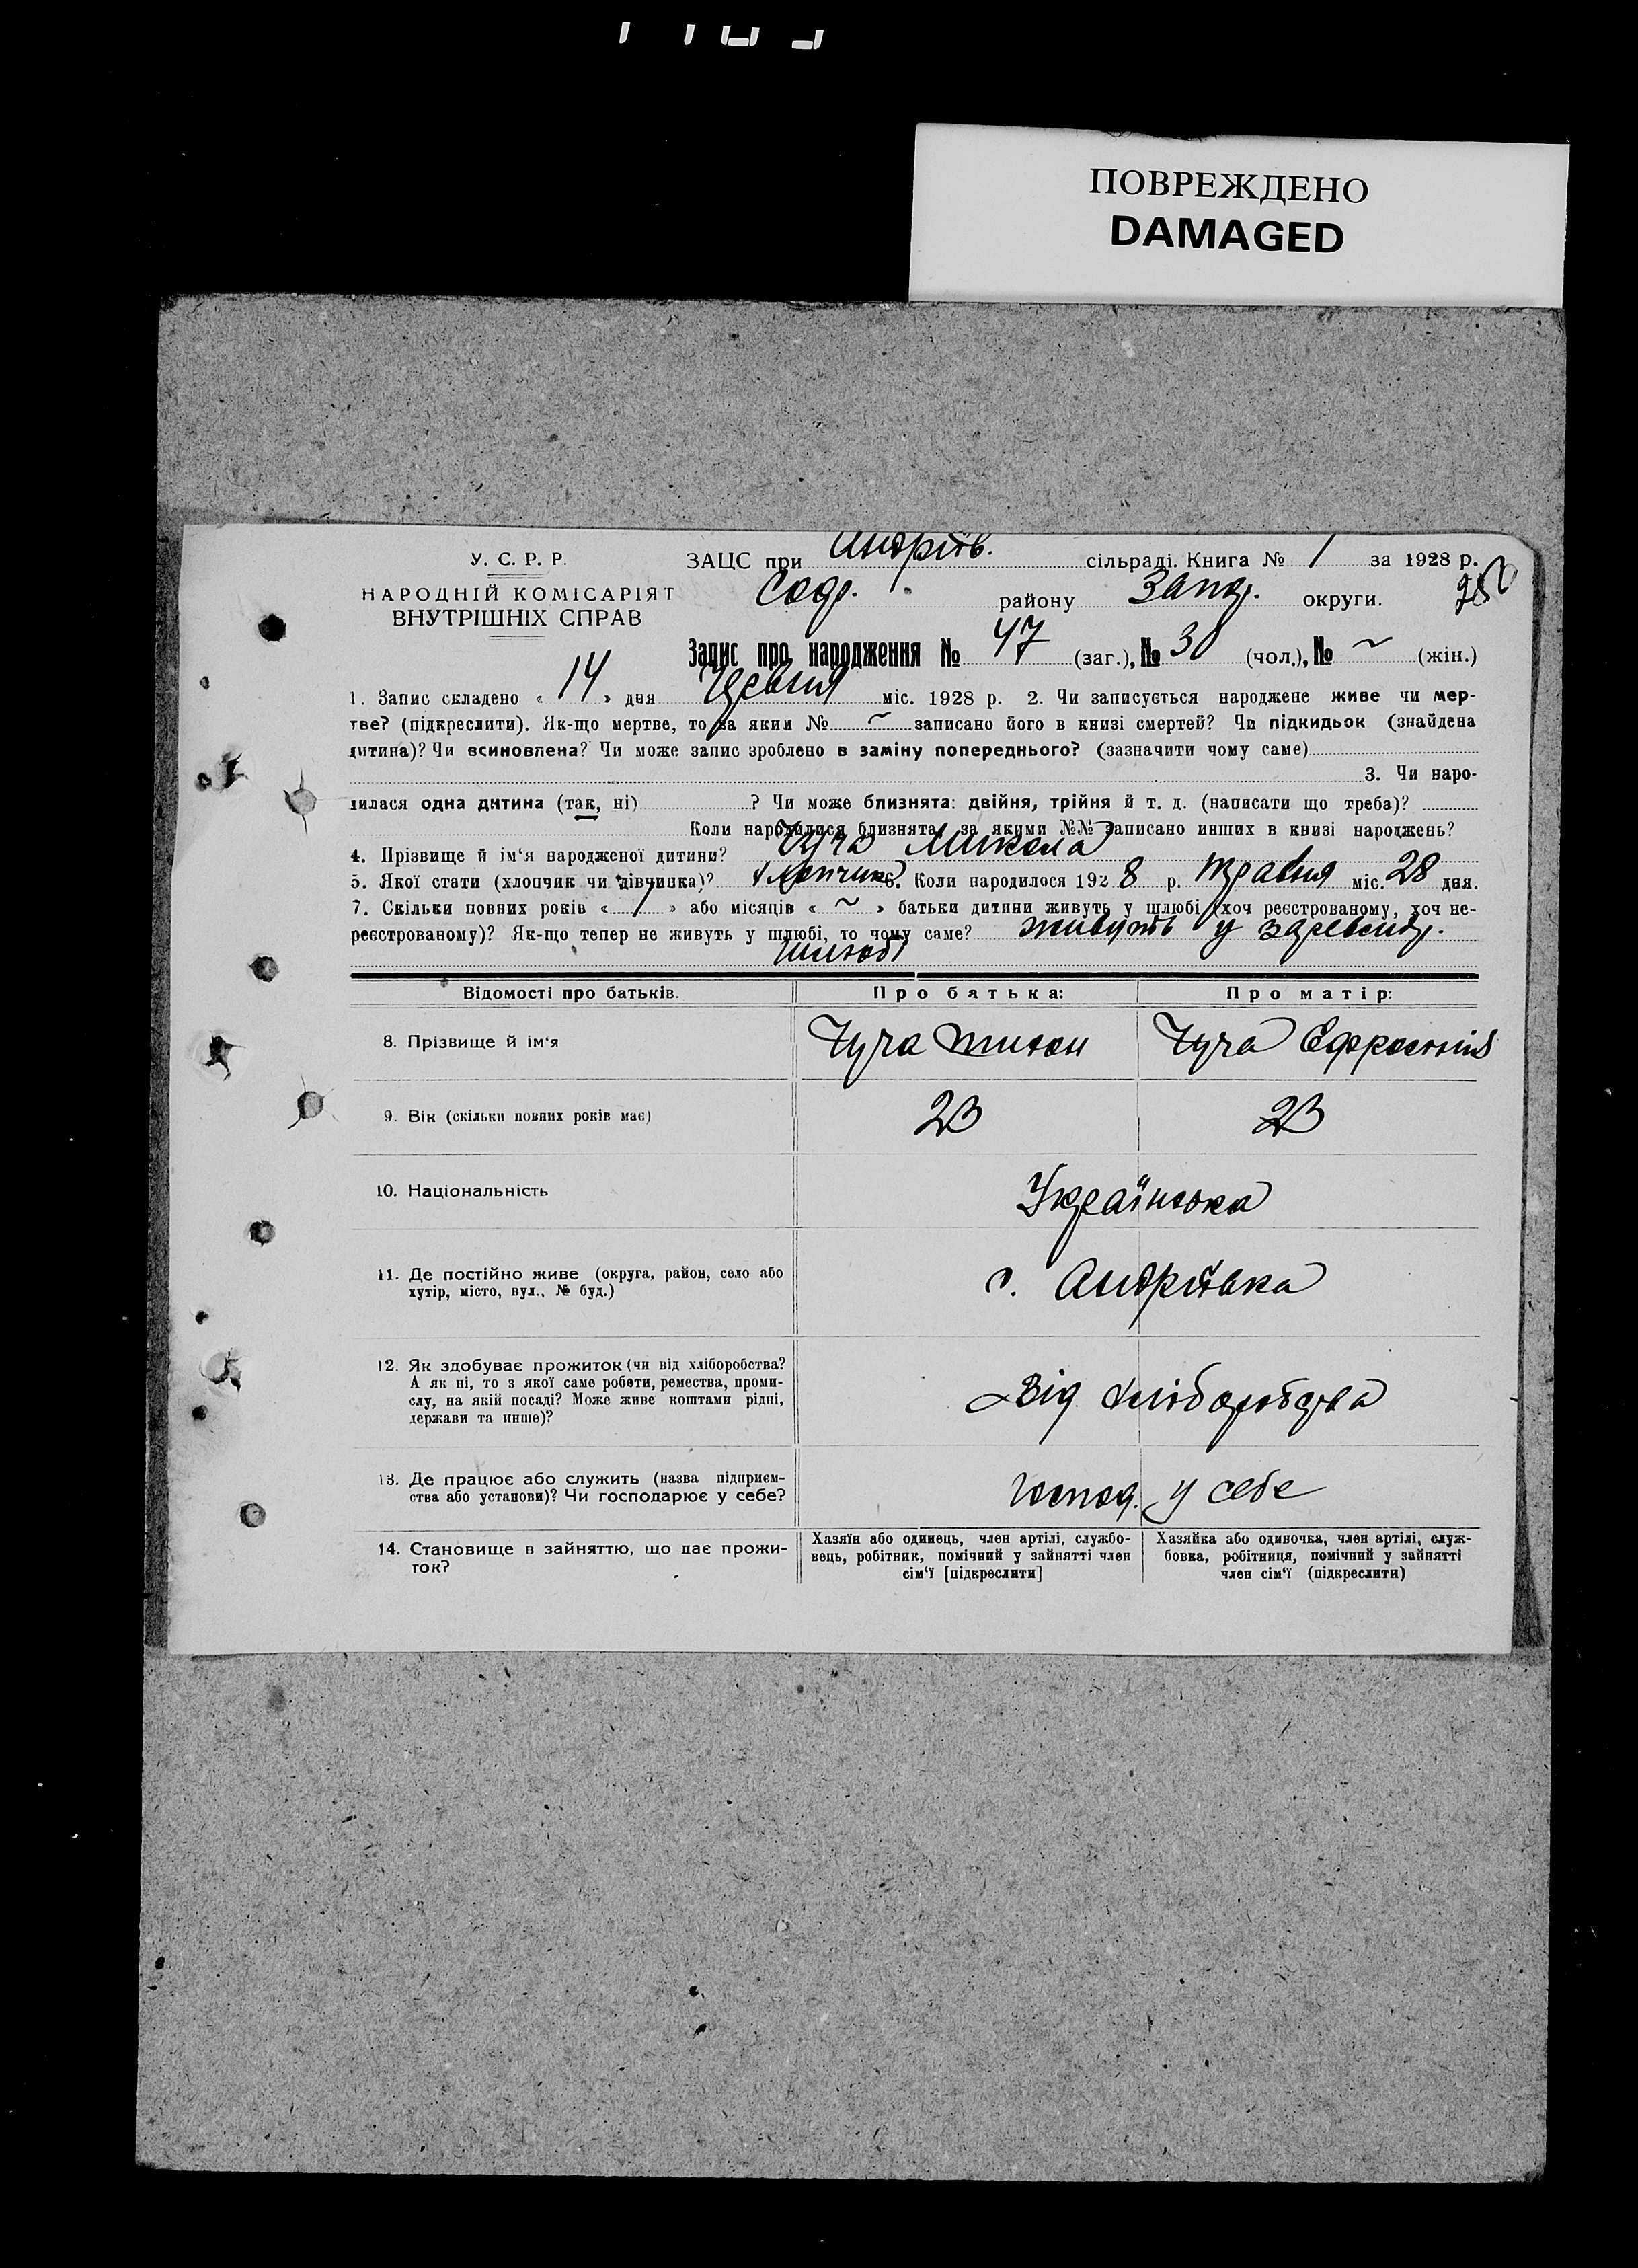 ПОВРЕЖДЕНО
DAMAGED
У. С. Р. Р.
НАРОДНІЙ КОМІСАРІЯТ
ВНУТРІШНІХ СПРАВ
ЗАЦС при Андріїв. сільраді. Книга № 1 за 1928 р.
району Запор. округи.
Запис про народження № 47 (заг.), № 30 (чол.), № ~ (жін.)
1. Запис складено « 14 » дня Червня міс. 1928 р. 2. Чи записується народжене живе чи мер-
тве? (підкреслити). Як-що мертве, то за яким № ~ записано його в книзі смертей? Чи підкидьок (знайдена
дитина)? Чи всиновлена? Чи може запис зроблено в заміну попереднього? (зазначити чому саме)
3. Чи наро-
дилася одна дитина (так, ні) ? Чи може близнята: двійня, трійня й т. д. (написати що треба)?
Коли народилися близнята, за якими №№ записано инших в книзі народжень?
4. Прізвище й ім'я народженої дитини? Микола
5. Якої стати (хлопчик чи дівчинка)? хлопчик 6. Коли народилося 1928 р. травня міс. 28 дня.
7. Скільки повних років « 1 » або місяців « ~ » батьки дитини живуть у шлюбі (хоч реєстрованому, хоч не-
реєстрованому)? Як-що тепер не живуть у шлюбі, то чому саме? живуть у
шлюбі
Відомості про батьків. Про батька: Про матір:
8. Прізвище й ім'я
9. Вік (скільки повних років має) 23 23
10. Національність Українська
11. Де постійно живе (округа, район, село або
хутір, місто, вул., № буд.) с. Андріївка
12. Як здобуває прожиток (чи від хліборобства?
А як ні, то з якої саме роботи, ремества, проми-
слу, на якій посаді? Може живе коштами рідні,
держави та инше)? Від хліборобства
13. Де працює або служить (назва підприєм-
ства або установи)? Чи господарює у себе? Господ. у себе
14. Становище в зайняттю, що дає прожи-
ток?
Хазяїн або одинець, член артілі, службо-
вець, робітник, помічний у зайнятті член
сім'ї [підкреслити]
Хазяйка або одиночка, член артілі, служ-
бовка, робітниця, помічний у зайнятті
член сім'ї (підкреслити)